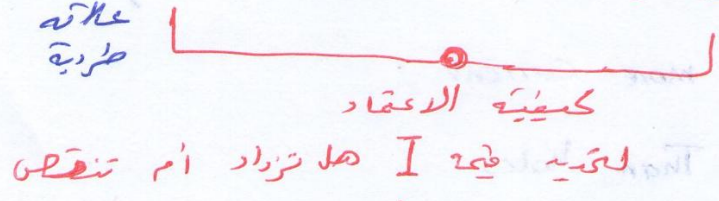 علاقه
طردية
كيفيته الاعتماد
لتحديد قيمه I هل تزداد أم تنقص